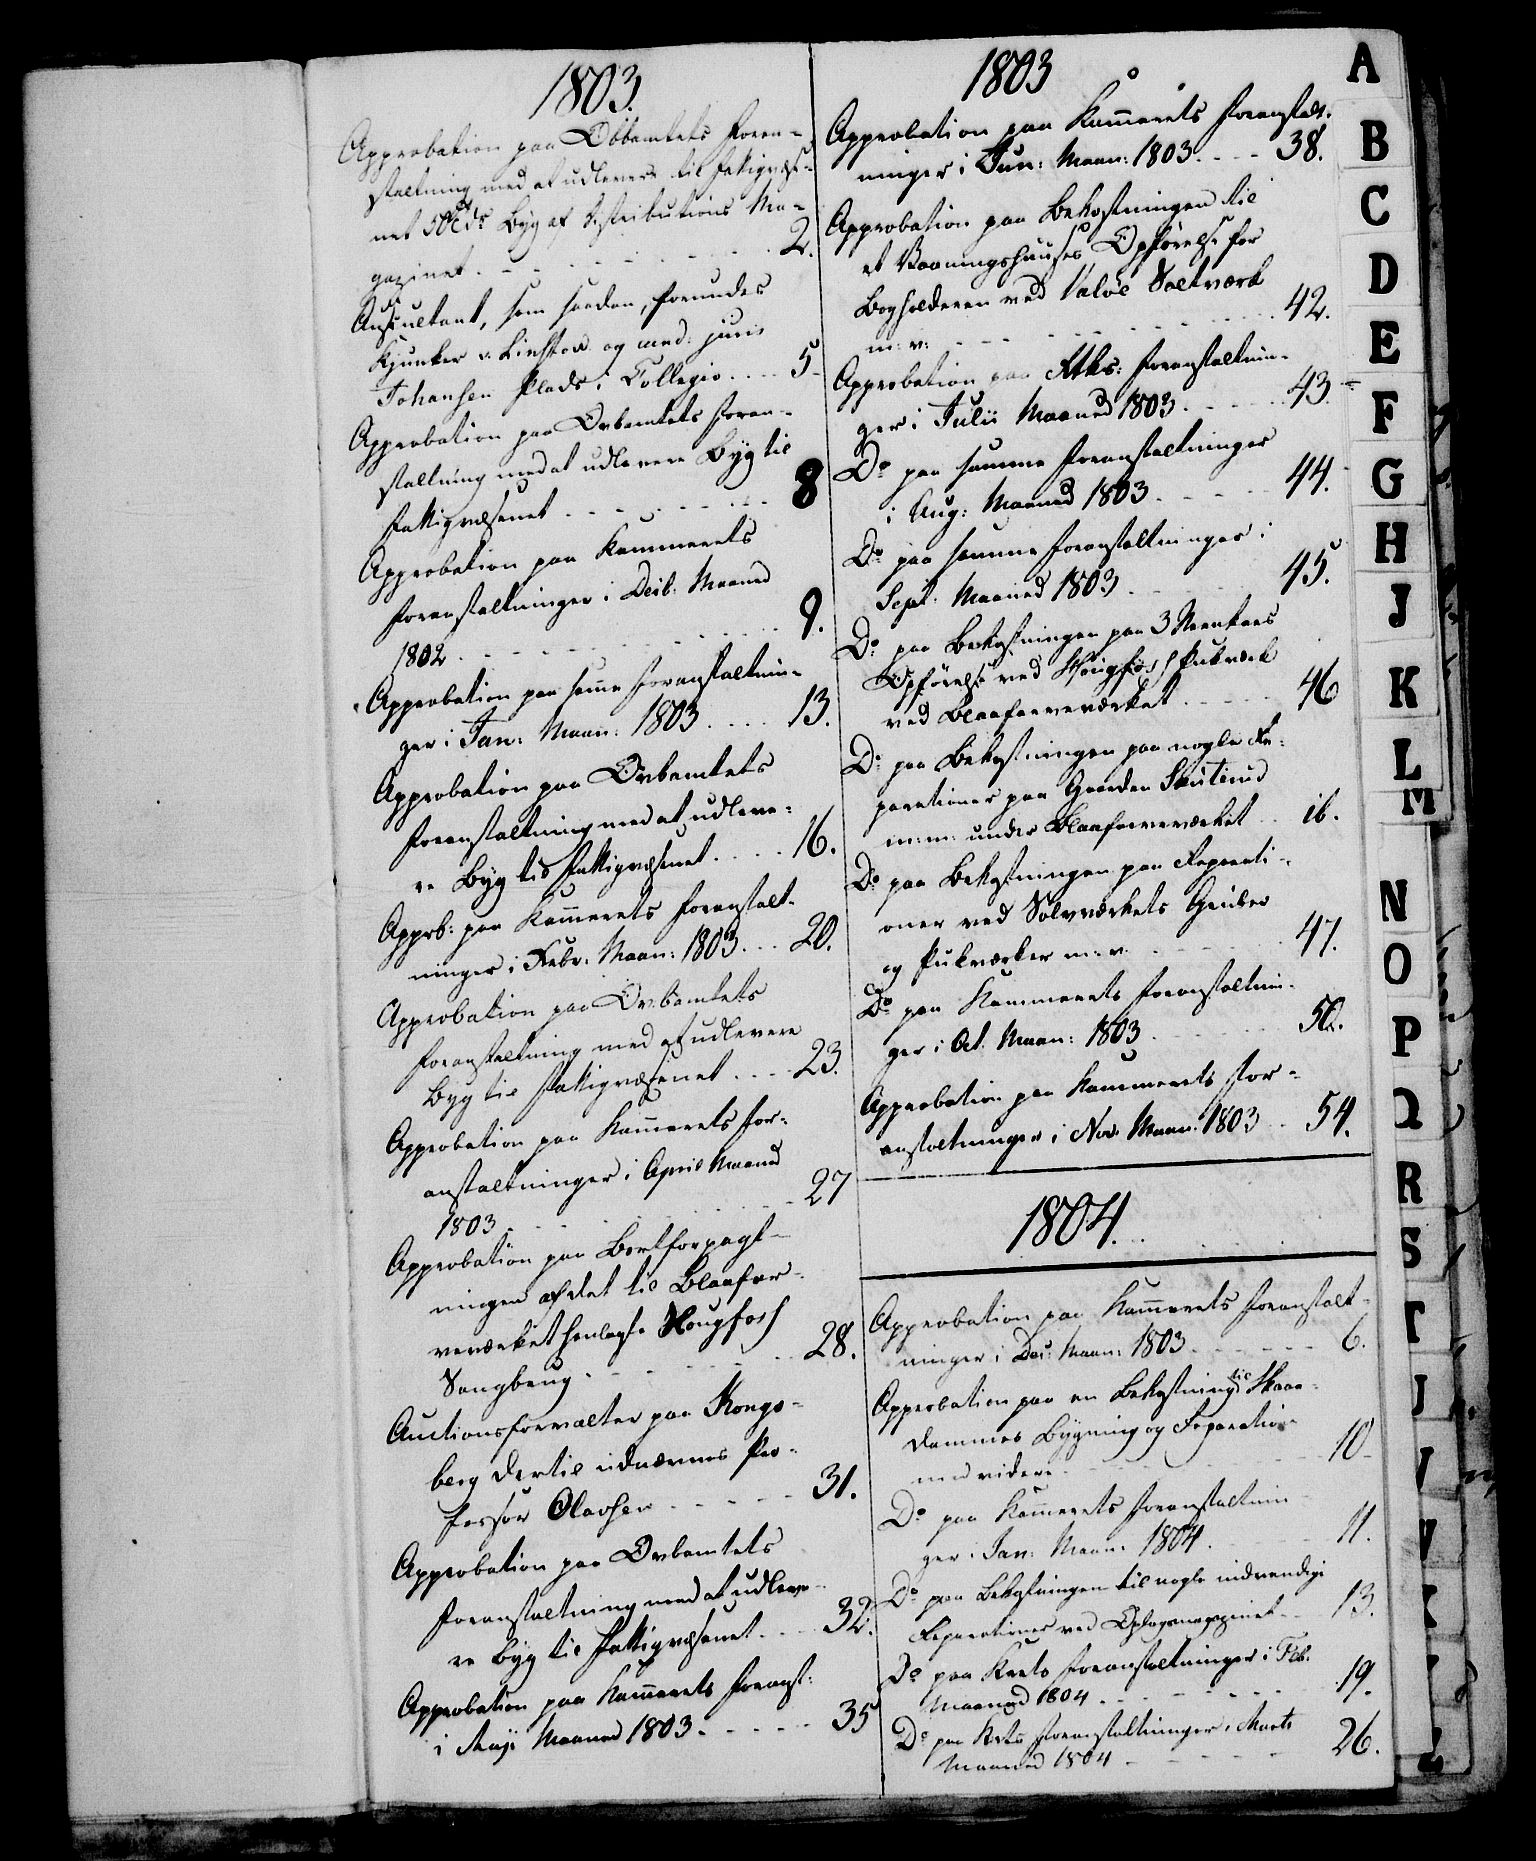 1803.
Approbation paa Obbamtets Foran-
staltning med at udlevere til Fattigvæs-
net 50 Tdr Byg af Distributions Ma-
gazinet. 2.
Auscultant, som saadan, forundes
Kjunker v. Linstow og cand: juris
Johansen Plads i Collegio 5
Approbation paa Ovbamtets Foran-
staltning med at udlevere Byg til
Fattigvæsenet 8
Approbation paa Kammerets
Foranstaltninger i Decb. Maaned
1802 9.
Approbation paa samme Foranstaltnin-
ger i Jan: Maan: 1803 13.
Approbation paa Ovbamtets
Foranstaltning med at udleve-
re Byg til Fattigvæsenet 16.
Apprb: paa Kam̄erets Foranstalt-
ninger i Febr. Maan: 1803 20.
Approbation paa Ovbamtets
Foranstaltning med at udlevere
Byg til Fattigvæsenet 23.
Approbation paa Kam̄erets For-
anstaltninger i April Maaned
1803 27
Approbation paa Bortforpagt-
ningen af det til Blaafar-
veværket henlagte Hougfoss
Saugbrug 28.
Auctionsforvalter paa Kongs-
berg dertil udnævnes Pro-
fessor Olavsen 31.
Approbation paa Ovbamtets
Foranstaltning med at udleve-
re Byg til Fattigvæsenet 32.
Approbation paa Kam̄erets Foranst:
i Maji Maaned 1803 35
1803
Approbation paa Kam̄erets Foranstalt-
ninger i Jun: Maan: 1803 38.
Approbation paa Bekostningen til
et Vaaningshuuses Opförelse for
Bogholderen ved Valöe Saltværk
m: v: 42.
Approbation paa Rtks: Foranstaltnin-
ger i Julii Maaned 1803 43
Do paa samme Foranstaltninger
i Aug: Maaned 1803 44.
Do paa samme Foranstaltninger i
Sept. Maaned 1803 45.
Do paa Bekostningen paa 3
Opförelse ved Hougfoss Pukværk
ved Blaafarveværket 46
Do paa Bekostningen paa nogle Re-
parationer paa Gaarden Skuterud
m: m: under Blaafarveværket ib.
Do paa Bekostningen paa Reparati-
oner ved Sölvværkets Gruber
og Pukværker m: v. 47.
Do paa Kammerets Foranstaltnin-
ger i Oct. Maan: 1803 50.
Approbation paa Kammerets For-
anstaltninger i Nov. Maan. 1803 54.
1804.
Approbation paa Kam̄erets Foranstalt-
ninger i Dec: Maan: 1803 6.
Approbation paa en Bekostning til Skare-
dammes Bygning og Reparation
med videre 10
Do paa Kam̄erets Foranstaltnin-
ger i Jan: Maan. 1804. 11.
Do paa Bekostningen til nogle indvendige
Reparationer ved Oplagsmagazinet 13.
Do paa Krets Foranstaltninger i Feb.
Maaned 1804 19.
Do paa Krets Foranstaltninger i Marts
Maaned 1804 26.
A
B
C
D
E
F
G
H
J
K
L
M
N
O
P
Q
R
S
T